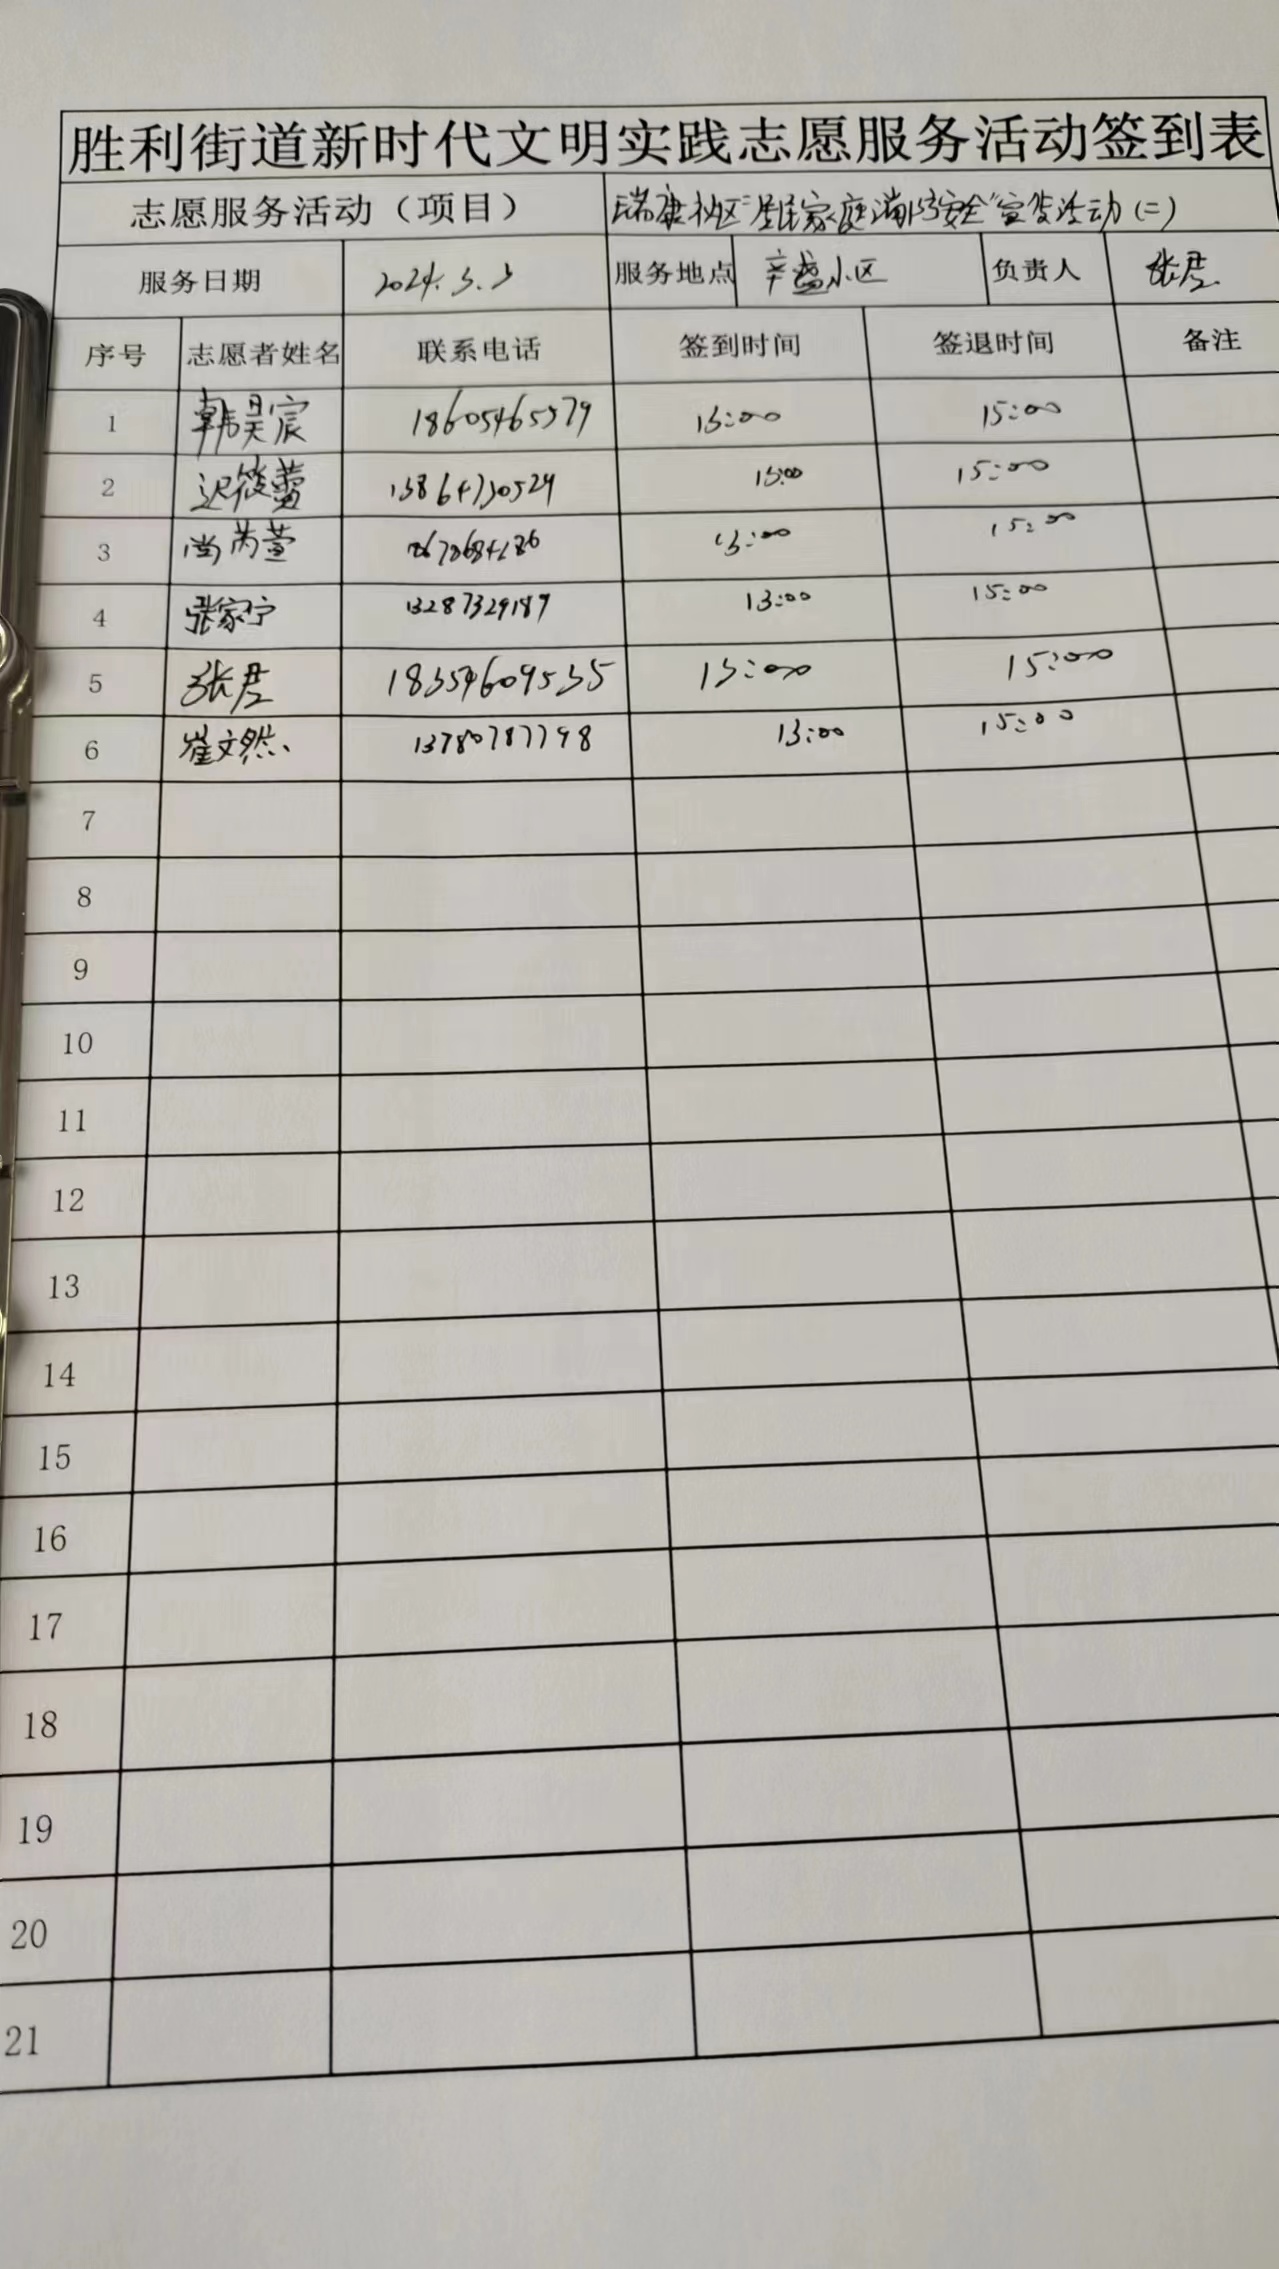 胜利街道新时代文明实践志愿服务活动签到表
志愿服务活动（项目） 瑞康社区“居民家庭消防安全”宣传活动（二）
服务日期 2024.3.3 服务地点 辛盛小区 负责人 张君
序号 志愿者姓名 联系电话 签到时间 签退时间 备注
1 韩昊宸 18605465579 13:00 15:00
2 迟筱蕾 13864730529 13:00 15:00
3 尚芮萱 13:00 15:00
4 张家宁 13287329189 13:00 15:00
5 张君 18354609535 13:00 15:00
6 崔文然 13780787798 13:00 15:00
7
8
9
10
11
12
13
14
15
16
17
18
19
20
21